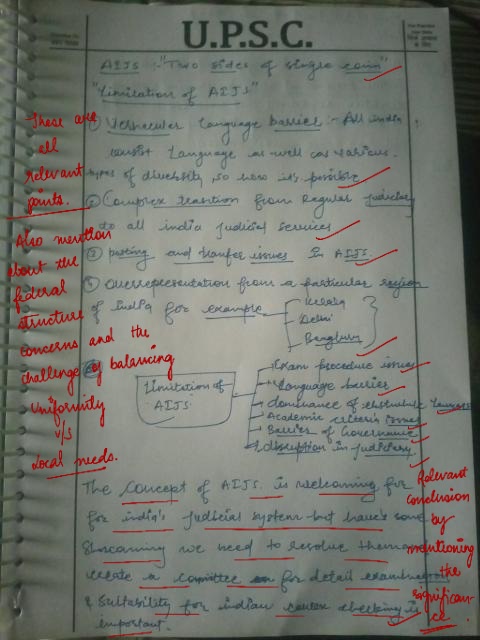 U.P.S.C.
AIJS :- "Two sides of single coin"
"Limitation of AIJS"
① Vernacular Language barrier :- All india
consist Language as well as various
types of diversity, so how it's possible
② Complex transtion from Regular Judiciary
to all india judicial services
③ posting and tranfer issues in AIJS.
④ overrepresentation from a particular region
of india for example
Kerala
Delhi
Banglura
Limitation of
AIJS
Exam procedure issues
Language barrier
dominance of
Academic criteria issues
Barrier of Governance
disruption in judiciary
The concept of AIJS is welcoming for
for india's judicial system but have some
we need to resolve them
create a committee for detail
& Suitability for indian checking is
important.
These are
all
relevant
points.
Also mention
about the
federal
structure
concerns and the
challenge of balancing
uniformity
v/s
Local needs.
Relevant
conclusion
by
mentioning
the
significan-
ce